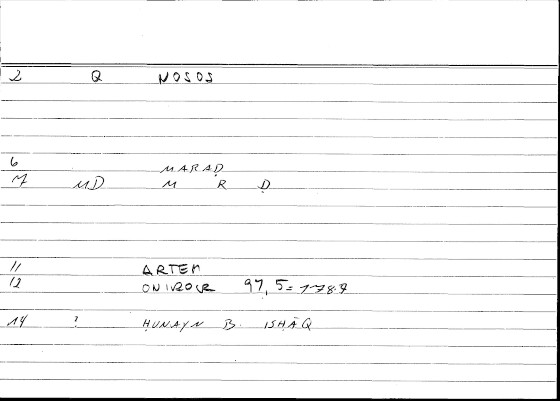 2 Q NOSOS
6 MARAḌ
7 MD M R Ḍ
11 ARTEM
12 ONIROCR 97,5 = 178,7
14 ? ḤUNAYN B. ISḤĀQ